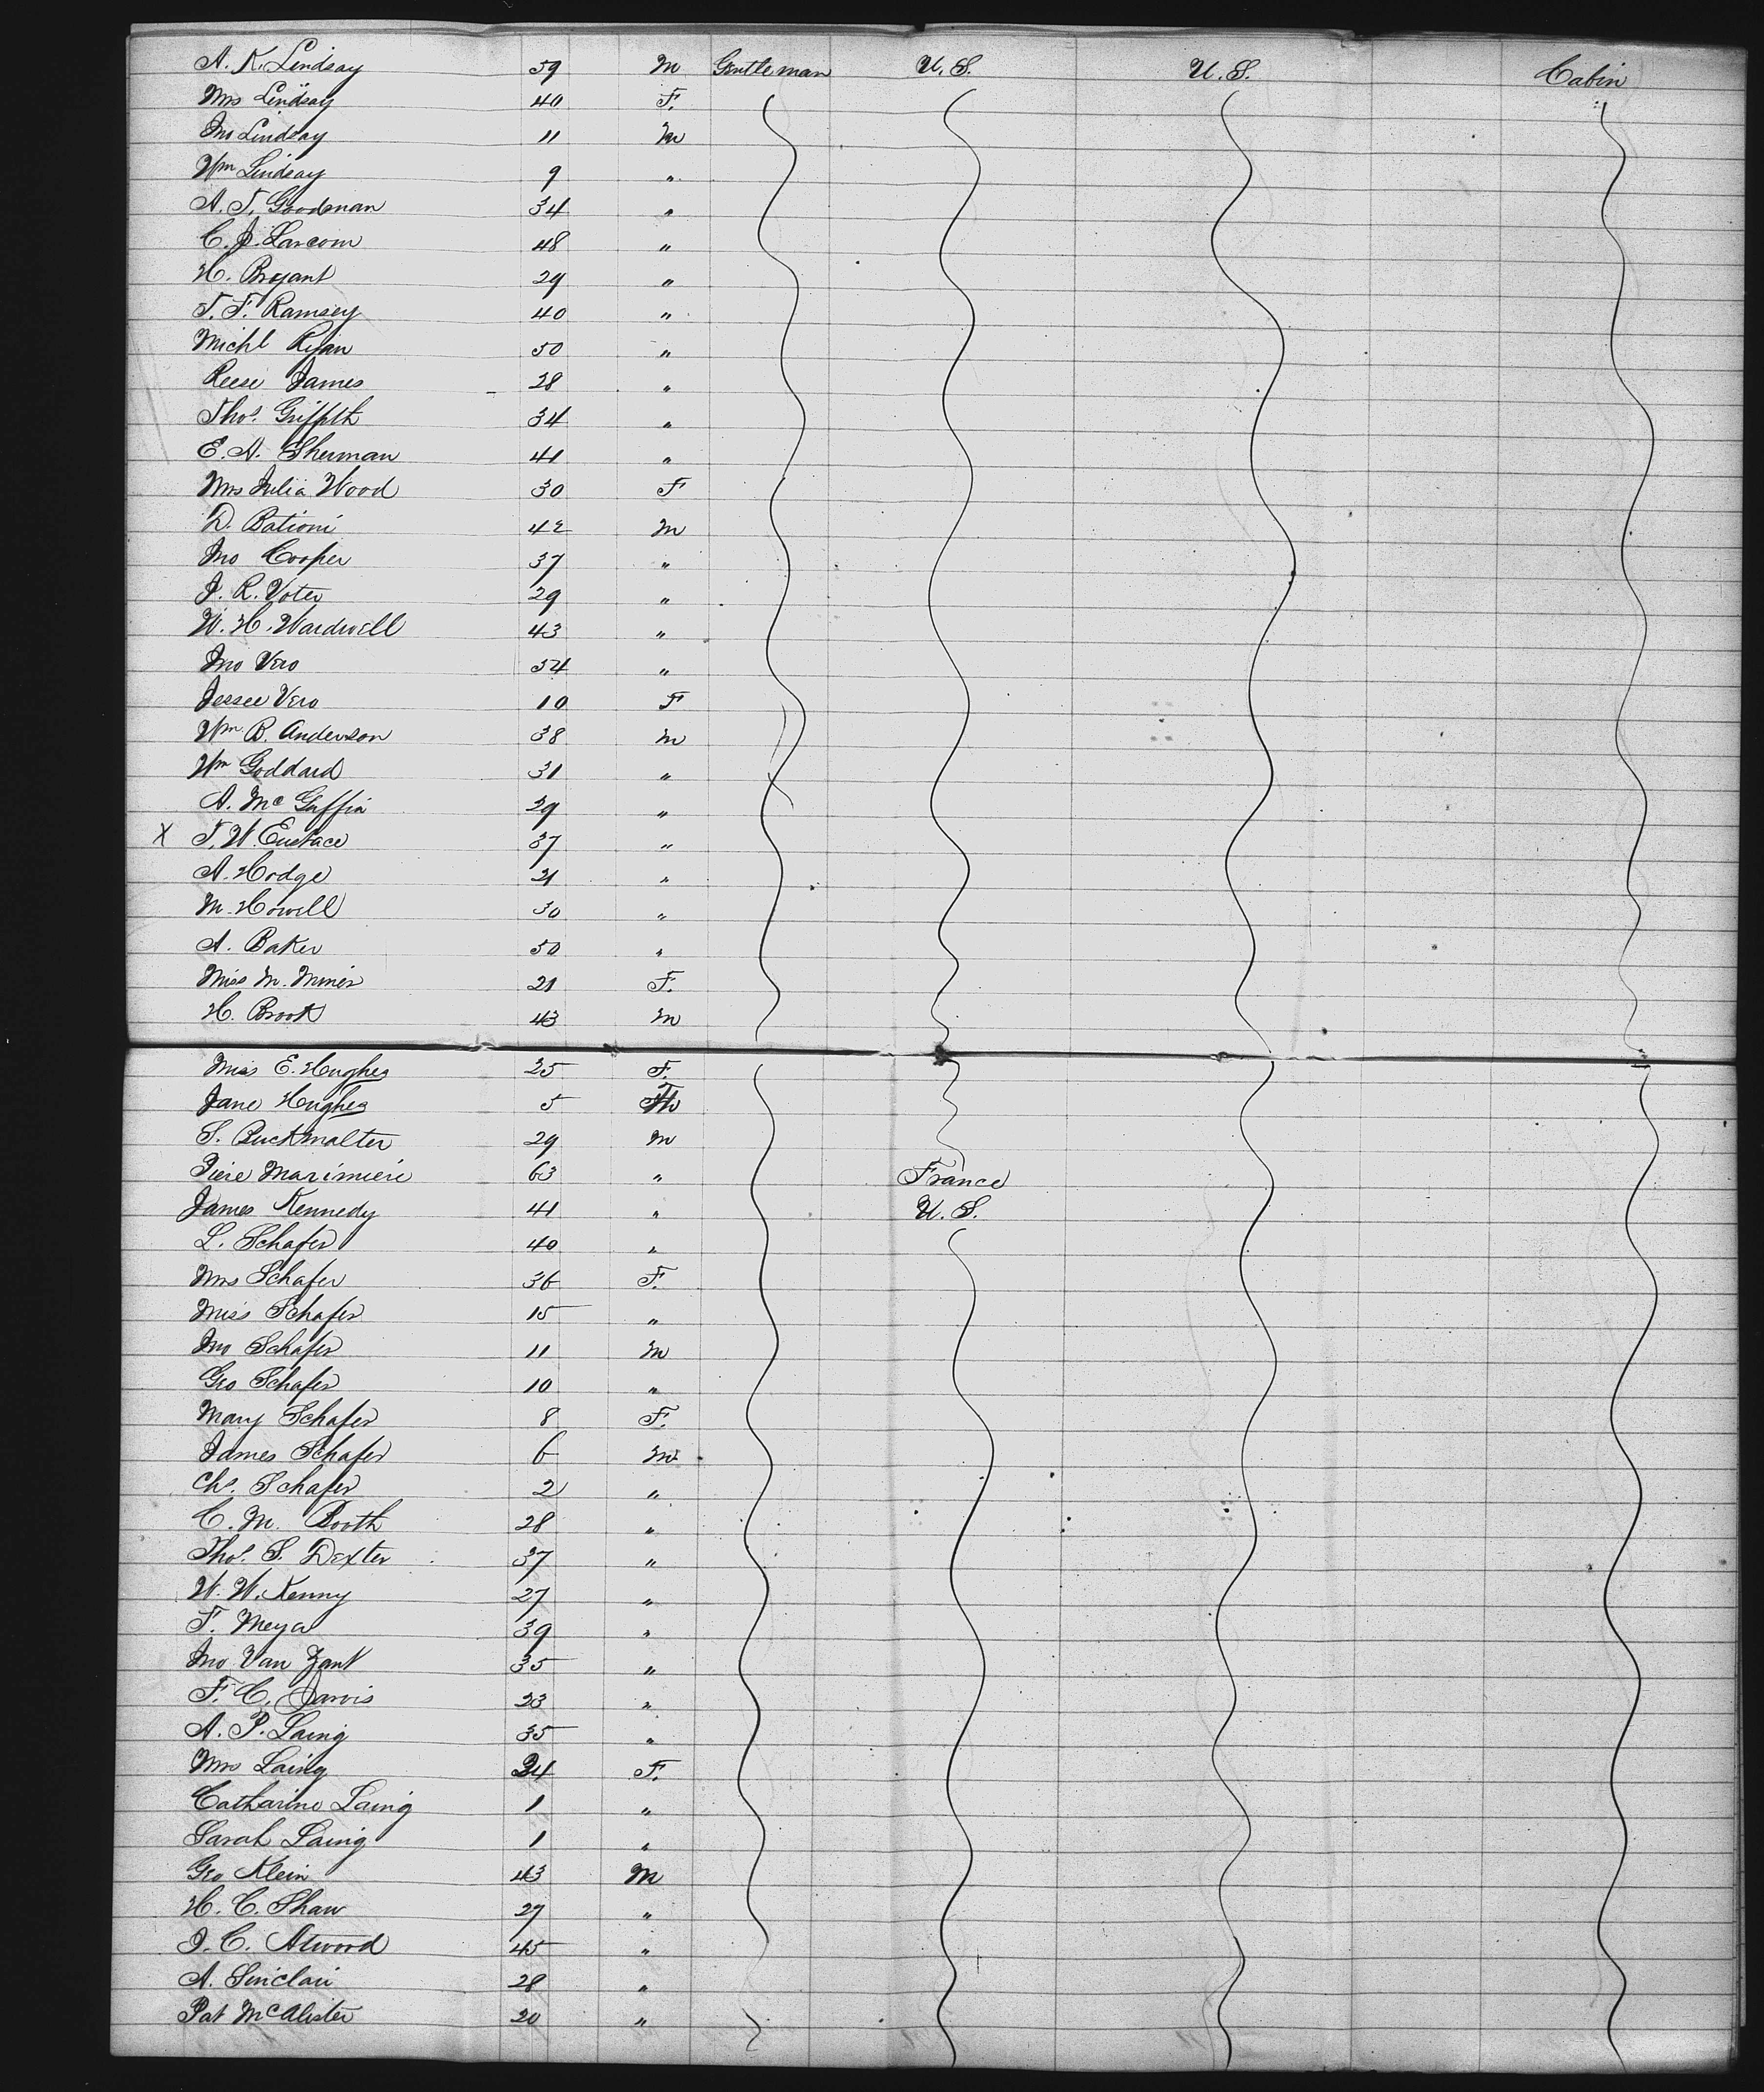 A. K. Lindsay 59 M Gentleman U.S. U.S. Cabin
Mrs Lindsay 40 F.
Jno Lindsay 11 M
Wm Lindsay 9 "
A. T. Goodman 34 "
C. J. Larcom 48 "
H. Bryant 29 "
T. F. Ramsey 40 "
Michl Ryan 50 "
Reese James 28 "
Thos. Griffith 34 "
E. A. Sherman 41 "
Mrs Julia Wood 30 F
D. Bationi 42 M
Jno Cooper 37 "
J. R. Voter 29 "
W. H. Wardwell 43 "
Jno Vero 54 "
Jessee Vero 10 F
Wm B. Anderson 38 M
Wm Goddard 31 "
A. Mc Gaffin 29 "
X T. W. Eustace 37 "
A. Hodge 21 "
M. Howell 30 "
A. Baker 50 "
Miss M. Miner 21 F.
H. Brook 43 M
Miss E. Hughes 25 F.
Jane Hughes 5 F
S. Buckmalter 29 M
Piere Marimiere 63 " France
James Kennedy 41 " U.S.
L. Schafer 40 "
Mrs Schafer 36 F.
Miss Schafer 15 "
Jno Schafer 11 M
Geo Schafer 10 "
Mary Schafer 8 F.
James Schafer 6 M
Chs. Schafer 2 "
C. M. Booth 28 "
Thos. S. Dexter 37 "
W. W. Kenny 27 "
F. Meya 39 "
Jno Van Zant 35 "
F. C. Jarvis 23 "
A. P. Laing 35 "
Mrs Laing 24 F.
Catharine Laing 1 "
Sarah Laing 1 "
Geo Klein 43 M
H. C. Shaw 27 "
J. C. Atwood 45 "
A. Sinclair 28 "
Pat McAlister 20 "